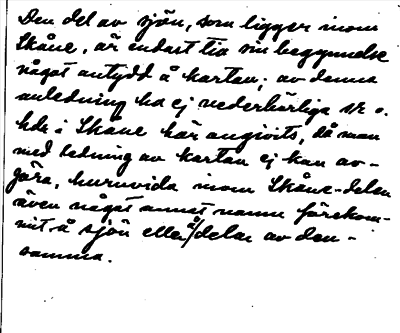 Den del av sjön, som ligger inom
Skåne, är endast till sin begynnelse
något antydd å kartan; av denna
anledning ha ej vederbörliga sk o.
hdr i Skåne här angivits, då man
med ledning av kartan ej kan av-
göra, huruvida inom Skåne-delen
även något annat namn förekom-
mit å sjön eller å/delar av den-
samma.